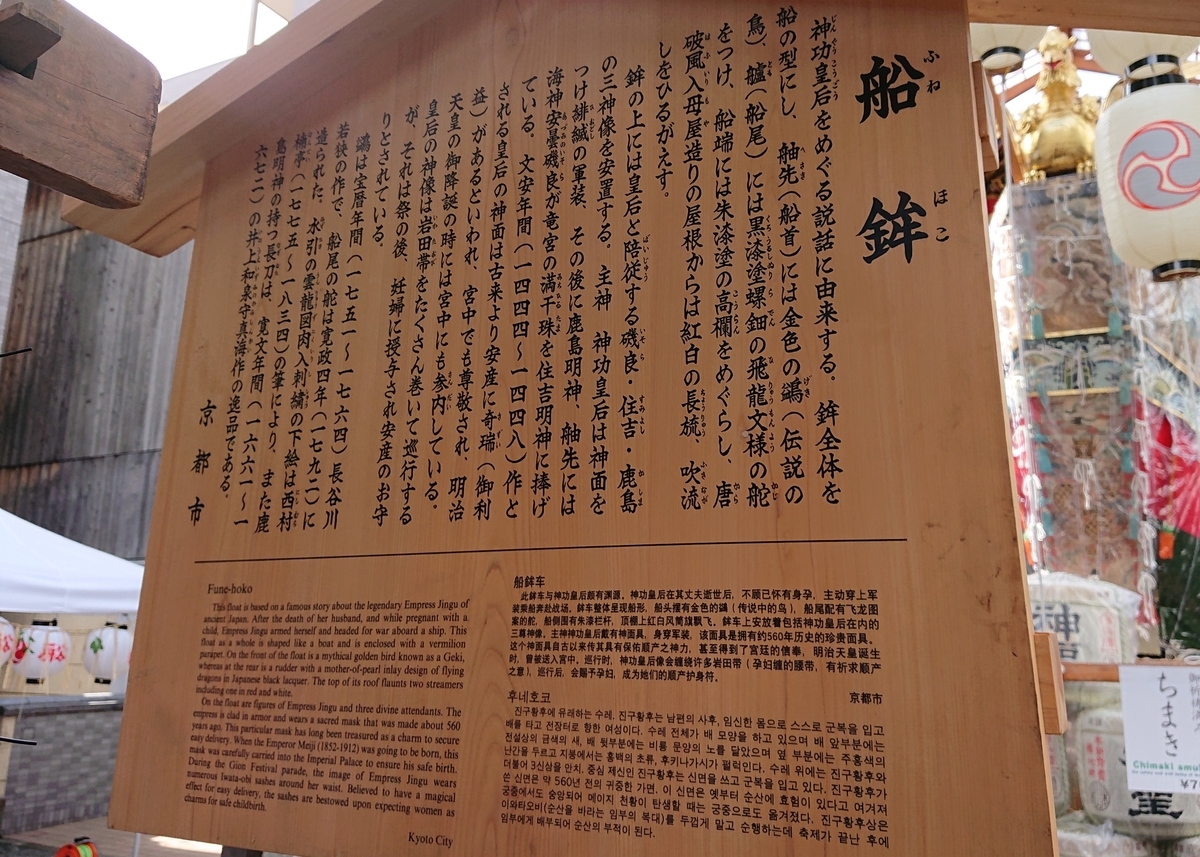 船鉾
神功皇后をめぐる説話に由来する。鉾全体を
船の型にし、舳先(船首)には金色の鷁(伝説の
鳥)、艫(船尾)には黒漆塗螺鈿の飛龍文様の舵
をつけ、船端には朱漆塗の高欄をめぐらし、唐
破風入母屋造りの屋根からは紅白の長旒、吹流
しをひるがえす。
鉾の上には皇后と陪従する磯良・住吉・鹿島
の三神像を安置する。主神 神功皇后は神面を
つけ緋縅の軍装、その後に鹿島明神、舳先には
海神安曇磯良が竜宮の満干珠を住吉明神に捧げ
ている。文安年間(一四四四〜一四四八)作と
される皇后の神面は古来より安産に奇瑞(御利
益)があるといわれ、宮中でも尊敬され、明治
天皇の御降誕の時には宮中にも参内している。
皇后の神像は岩田帯をたくさん巻いて巡行する
が、それは祭の後、妊婦に授与され安産のお守
りとされている。
鷁は宝暦年間(一七五一〜一七六四)長谷川
若狭の作で、船尾の舵は寛政四年(一七九二)に
造られた。水引の雲龍図肉入刺繍の下絵は西村
楠亭(一七七五〜一八三四)の筆により、また鹿
島明神の持つ長刀は、寛文年間(一六六一〜一
六七二)の井上和泉守真海作の逸品である。
京都市
Fune-hoko
This float is based on a famous story about the legendary Empress Jingu of
ancient Japan. After the death of her husband, and while pregnant with a
child, Empress Jingu armed herself and headed for war aboard a ship. This
float as a whole is shaped like a boat and is enclosed with a vermilion
parapet. On the front of the float is a mythical golden bird known as a Geki,
whereas at the rear is a rudder with a mother-of-pearl inlay design of flying
dragons in Japanese black lacquer. The top of its roof flaunts two streamers
including one in red and white.
On the float are figures of Empress Jingu and three divine attendants. The
empress is clad in armor and wears a sacred mask that was made about 560
years ago. This particular mask has long been treasured as a charm to secure
easy delivery. When the Emperor Meiji (1852-1912) was going to be born, this
mask was carefully carried into the Imperial Palace to ensure his safe birth.
During the Gion Festival parade, the image of Empress Jingu wears
numerous Iwata-obi sashes around her waist. Believed to have a magical
effect for easy delivery, the sashes are bestowed upon expecting women as
charms for safe childbirth.
Kyoto City
船鉾车
此鉾车与神功皇后颇有渊源。神功皇后在其丈夫逝世后，不顾已怀有身孕，主动穿上军
装乘船奔赴战场。鉾车整体呈现船形，船头摆有金色的鷁（传说中的鸟），船尾配有飞龙图
案的舵，船侧围有朱漆栏杆，顶棚上红白风筒旗飘飞。鉾车上安放着包括神功皇后在内的
三尊神像，主神神功皇后戴有神面具，身穿军装，该面具是拥有约560年历史的珍贵面具。
这个神面具自古以来传其具有保佑顺产之神力，甚至得到了宫廷的信奉，明治天皇诞生
时，曾被送入宫中。巡行时，神功皇后像会缠绕许多岩田带（孕妇缠的腰带，有祈求顺产
之意），巡行后，会赐予孕妇，成为她们的顺产护身符。
京都市
후네호코
진구황후에 유래하는 수레. 진구황후는 남편의 사후, 임신한 몸으로 스스로 군복을 입고
배를 타고 전장터로 향한 여성이다. 수레 전체가 배 모양을 하고 있으며 배 앞부분에는
전설상의 금색의 새, 배 뒷부분에는 비룡 문양의 노를 달았으며 옆 부분에는 주홍색의
난간을 두르고 지붕에서는 홍백의 초류, 후키나가시가 펄럭인다. 수레 위에는 진구황후와
더불어 3신상을 안치, 중심 제신인 진구황후는 신면을 쓰고 군복을 입고 있다. 진구황후가
쓴 신면은 약 560년 전의 귀중한 가면. 이 신면은 옛부터 순산에 효험이 있다고 여겨져
궁중에서도 숭앙되어 메이지 천황이 탄생할 때는 궁중으로도 옮겨졌다. 진구황후상은
이와타오비(순산을 바라는 임부의 복대)를 두껍게 말고 순행하는데 축제가 끝난 후에
임부에게 배부되어 순산의 부적이 된다.
ちまき
Chimaki amul